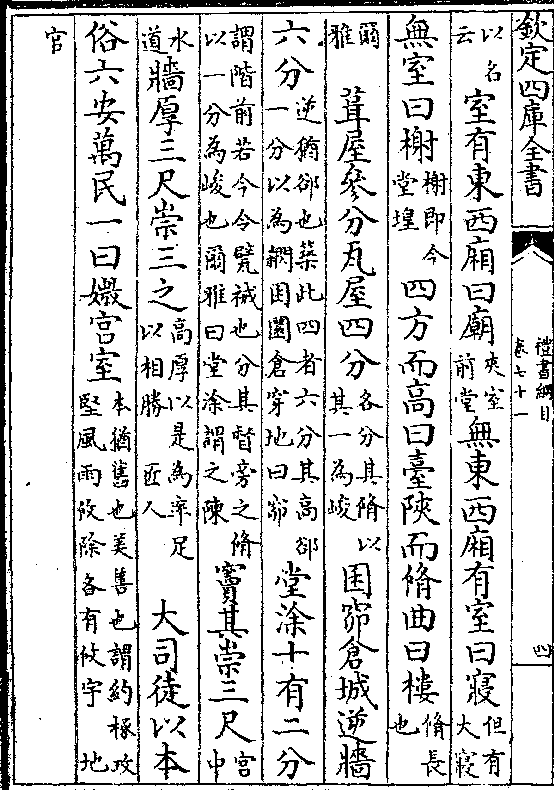 欽定四庫全書 禮書綱目 卷七十一 四
以名云 室有東西廂曰廟夾室前堂無東西廂有室曰寢但有大寢
無室曰榭榭即今堂堭四方而高曰臺陜而脩曲曰樓脩長也
爾雅 葺屋參分瓦屋四分各分其脩以其一為峻囷窌倉城逆牆
六分逆猶郤也築此四者六分其高郤一分以為閷囷圜倉穿地曰窌堂涂十有二分
謂階前若今令甓裓也分其督旁之脩以一分為峻也爾雅曰堂涂謂之陳竇其崇三尺宮中
水道牆厚三尺崇三之高厚以是為率足以相勝 匠人 大司徒以本
俗六安萬民一曰媺宮室本猶舊也美善也謂約椓攻堅風雨攸除各有攸宇 地
官